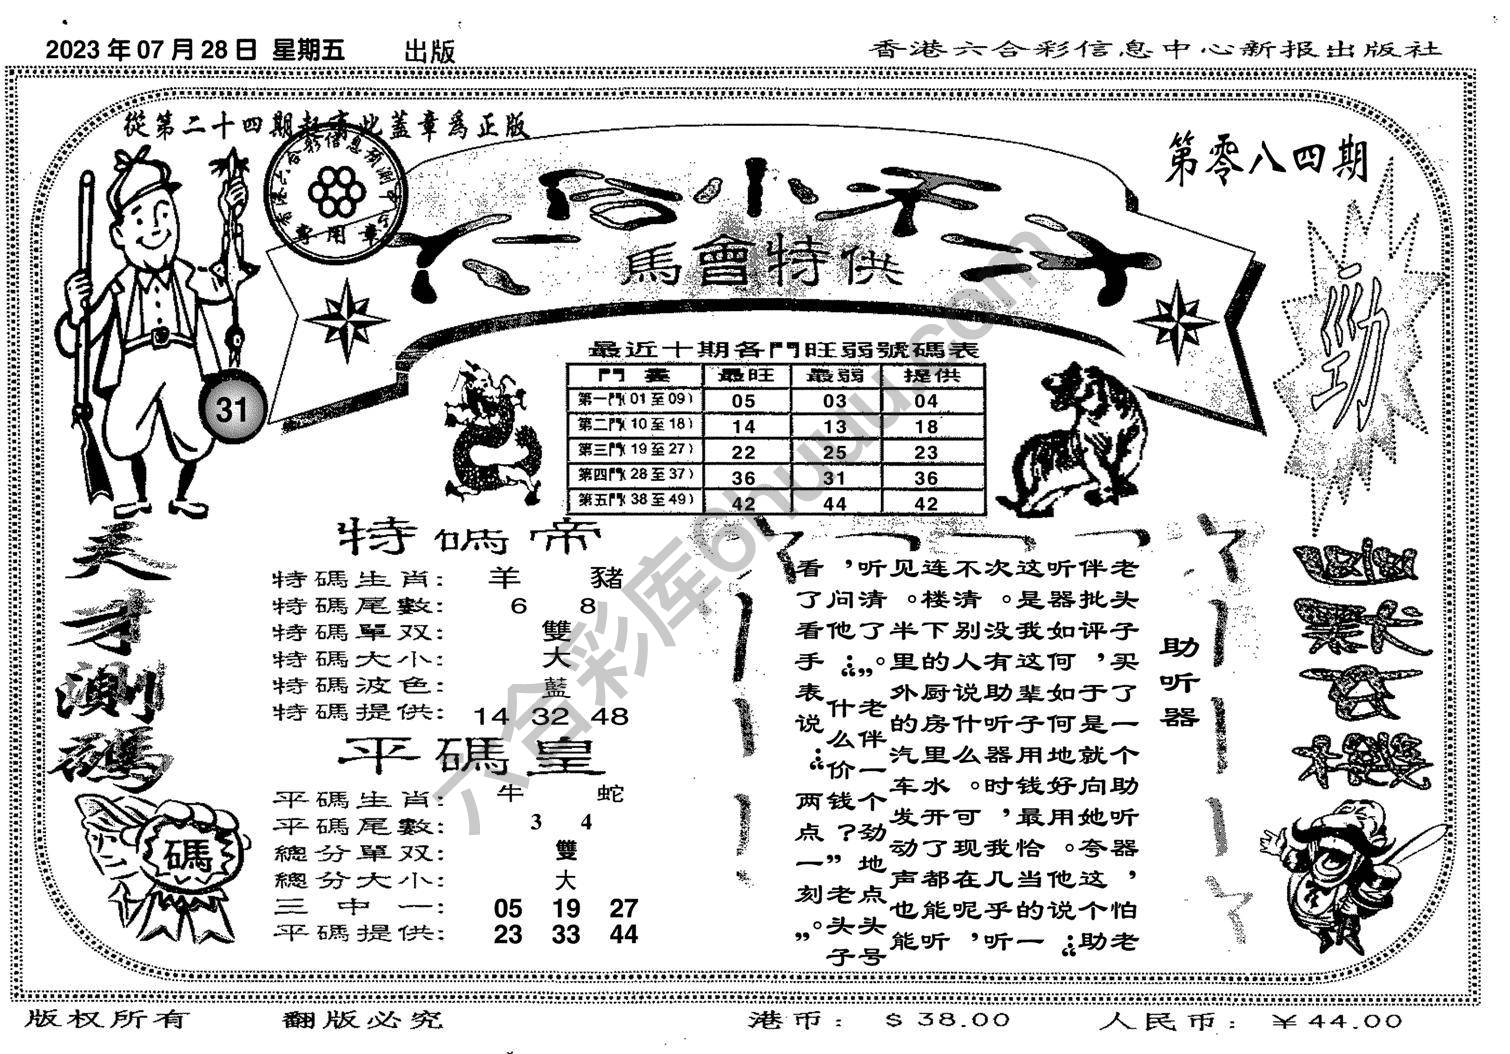 2023年07月28日 星期五 出版
香港六合彩信息中心新报出版社
從第二十四期起有此蓋章爲正版
第零八四期
六合小天才
馬會特供
專用章
勁
31
最近十期各門旺弱號碼表
最旺 最弱 提供
第一門(01至09) 05 03 04
第二門(10至18) 14 13 18
第三門(19至27) 22 25 23
第四門(28至37) 36 31 36
第五門(38至49) 42 44 42
天才測碼
碼
特碼帝
特碼生肖: 羊 豬
特碼尾數: 6 8
特碼單双: 雙
特碼大小: 大
特碼波色: 藍
特碼提供: 14 32 48
平碼皇
平碼生肖: 牛 蛇
平碼尾數: 3 4
總分單双: 雙
總分大小: 大
三中一: 05 19 27
平碼提供: 23 33 44
助听器
老头子买了一个助听器,怕老
伴批评,于是就向她夸这个助
听器如何如何地好用。他说:
“这是我这辈子用钱最恰当的一
次。没有助听器时,我几乎听
不清别人说什么。可现在呢,
连楼下的厨房里水开了都能听
见。半里外的汽车发动声也能
听清了。”
老伴一个劲地点头,
问他:“什么价钱?”老头子
看了看手表说:“两点一刻。”
版权所有
翻版必究
港币: $38.00
人民币: ¥44.00
六合彩库6huuu.com